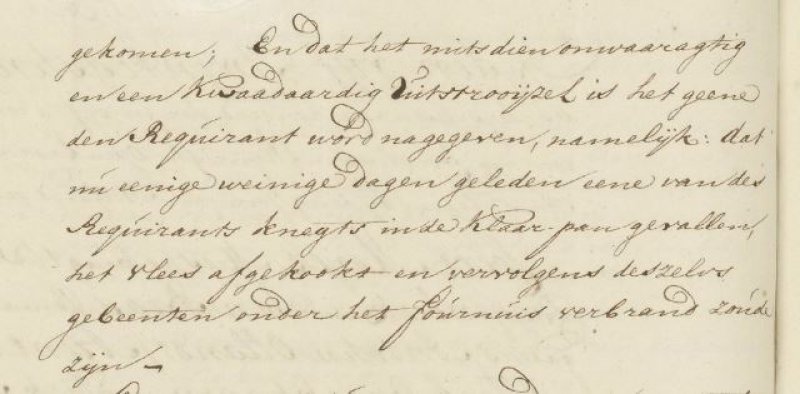 gekomen; En dat het mitsdien onwaaragtig
en een Kwaadaardig Uitstrooijzel is het geene
den Requirant word nagegeven, namelijk: dat
nu eenige weinige dagen geleden eene van des
Requirants knegts in de Klaar-pan gevallen,
het vlees afgekookt en vervolgens deszelvs
gebeenten onder het fournuis verbrand zoude
zijn –